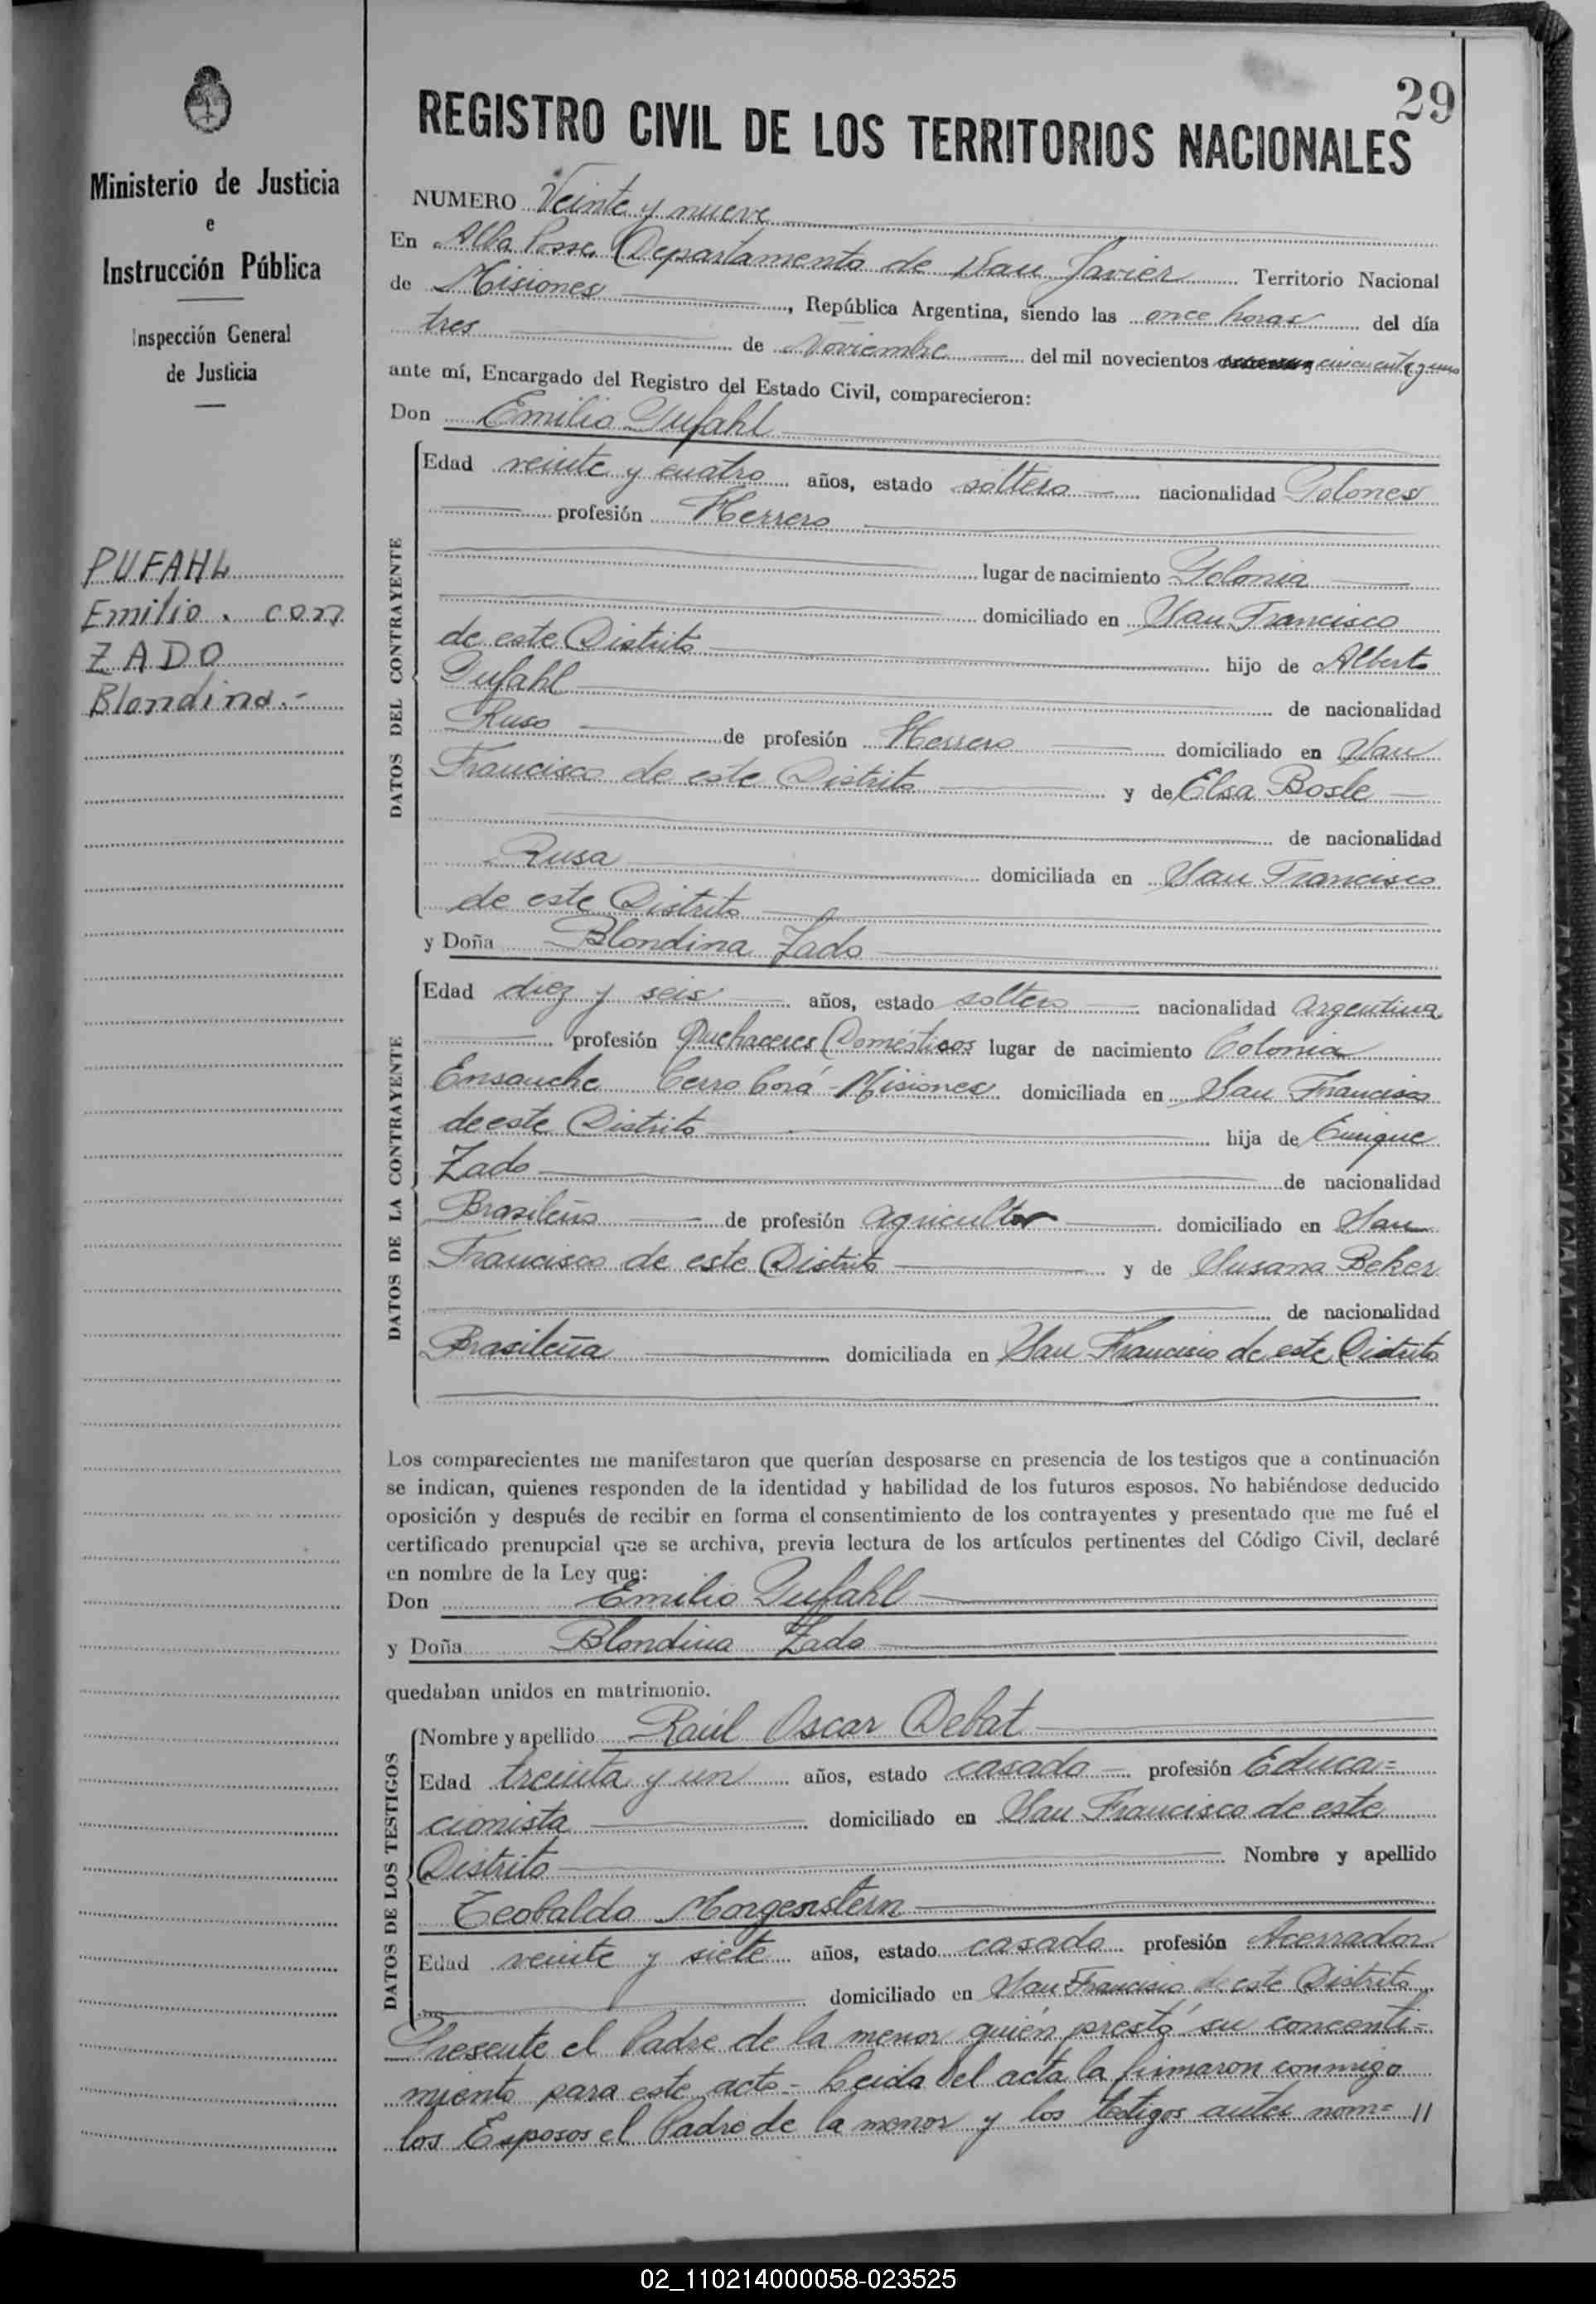 29
Ministerio de Justicia
e
Instrucción Pública
Inspección General
de Justicia
PUFAHL
Emilio. con
ZADO
Blondina.-
REGISTRO CIVIL DE LOS TERRITORIOS NACIONALES
NUMERO Veinte y nueve
En Alba Posse, Departamento de San Javier Territorio Nacional
de Misiones, República Argentina, siendo las once horas del día
tres de Noviembre del mil novecientos cincuenta y uno
ante mí, Encargado del Registro del Estado Civil, comparecieron:
Don Emilio Pufahl
DATOS DEL CONTRAYENTE
Edad veinte y cuatro años, estado soltero nacionalidad Polones
profesión Herrero
lugar de nacimiento Polonia
domiciliado en San Francisco
de este Distrito hijo de Alberto
Pufahl de nacionalidad
Ruso de profesión Herrero domiciliado en San
Francisco de este Distrito y de Elsa Bosle
de nacionalidad
Rusa domiciliada en San Francisco
de este Distrito
y Doña Blondina Zado
DATOS DE LA CONTRAYENTE
Edad diez y seis años, estado soltero nacionalidad Argentina
profesión Quehaceres Domésticos lugar de nacimiento Colonia
Ensanche Cerro Corá - Misiones domiciliada en San Francisco
de este Distrito hija de Enrique
Zado de nacionalidad
Brasileño de profesión agricultor domiciliado en San
Francisco de este Distrito y de Susana Beker
de nacionalidad
Brasileña domiciliada en San Francisco de este Distrito
Los comparecientes me manifestaron que querían desposarse en presencia de los testigos que a continuación
se indican, quienes responden de la identidad y habilidad de los futuros esposos. No habiéndose deducido
oposición y después de recibir en forma el consentimiento de los contrayentes y presentado que me fué el
certificado prenupcial que se archiva, previa lectura de los artículos pertinentes del Código Civil, declaré
en nombre de la Ley que:
Don Emilio Pufahl
y Doña Blondina Zado
quedaban unidos en matrimonio.
DATOS DE LOS TESTIGOS
Nombre y apellido Raúl Oscar Debat
Edad treinta y un años, estado casado profesión Educa=
cionista domiciliado en San Francisco de este
Distrito Nombre y apellido
Teobaldo Morgenstern
Edad veinte y siete años, estado casado profesión Acerrador
domiciliado en San Francisco de este Distrito
Presente el Padre de la menor quién prestó su concenti=
miento para este acto - Leida del acta la firmaron conmigo
los Esposos el Padre de la menor y los testigos antes nom= //
02_110214000058-023525